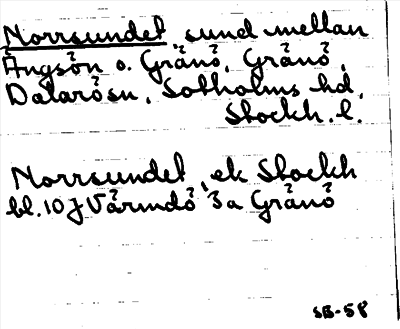 Norrsundet, sund mellan
Ängsön o. Gränö, Gränö,
Dalarö sn, Sotholms hd,
Stockh. l.
Norrsundet, ek Stockh
bl. 10 J Värmdö 3a Gränö
SB-58